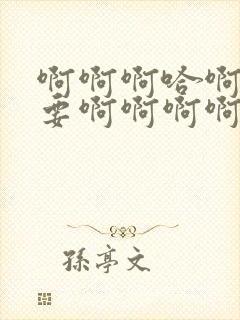 啊啊啊哈啊
要啊啊啊啊
孫亭文